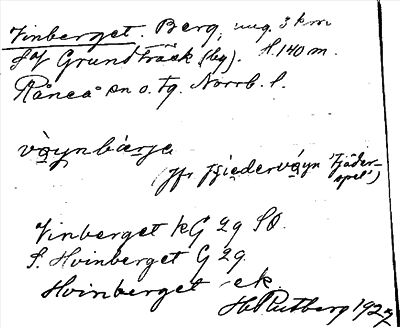 Vinberget. Berg, ung. 3 km
SV Grundträsk (by). H. 140 m.
Råneå sn o. tg. Norrb. l.
vò̱ynbærje
(jfr fjiedervó̱yn 'fjäder-
spel')
Vinberget kG 29 SO.
S. Hvinberget G 29.
Hvinberget - ek.
H. Rutberg 1927